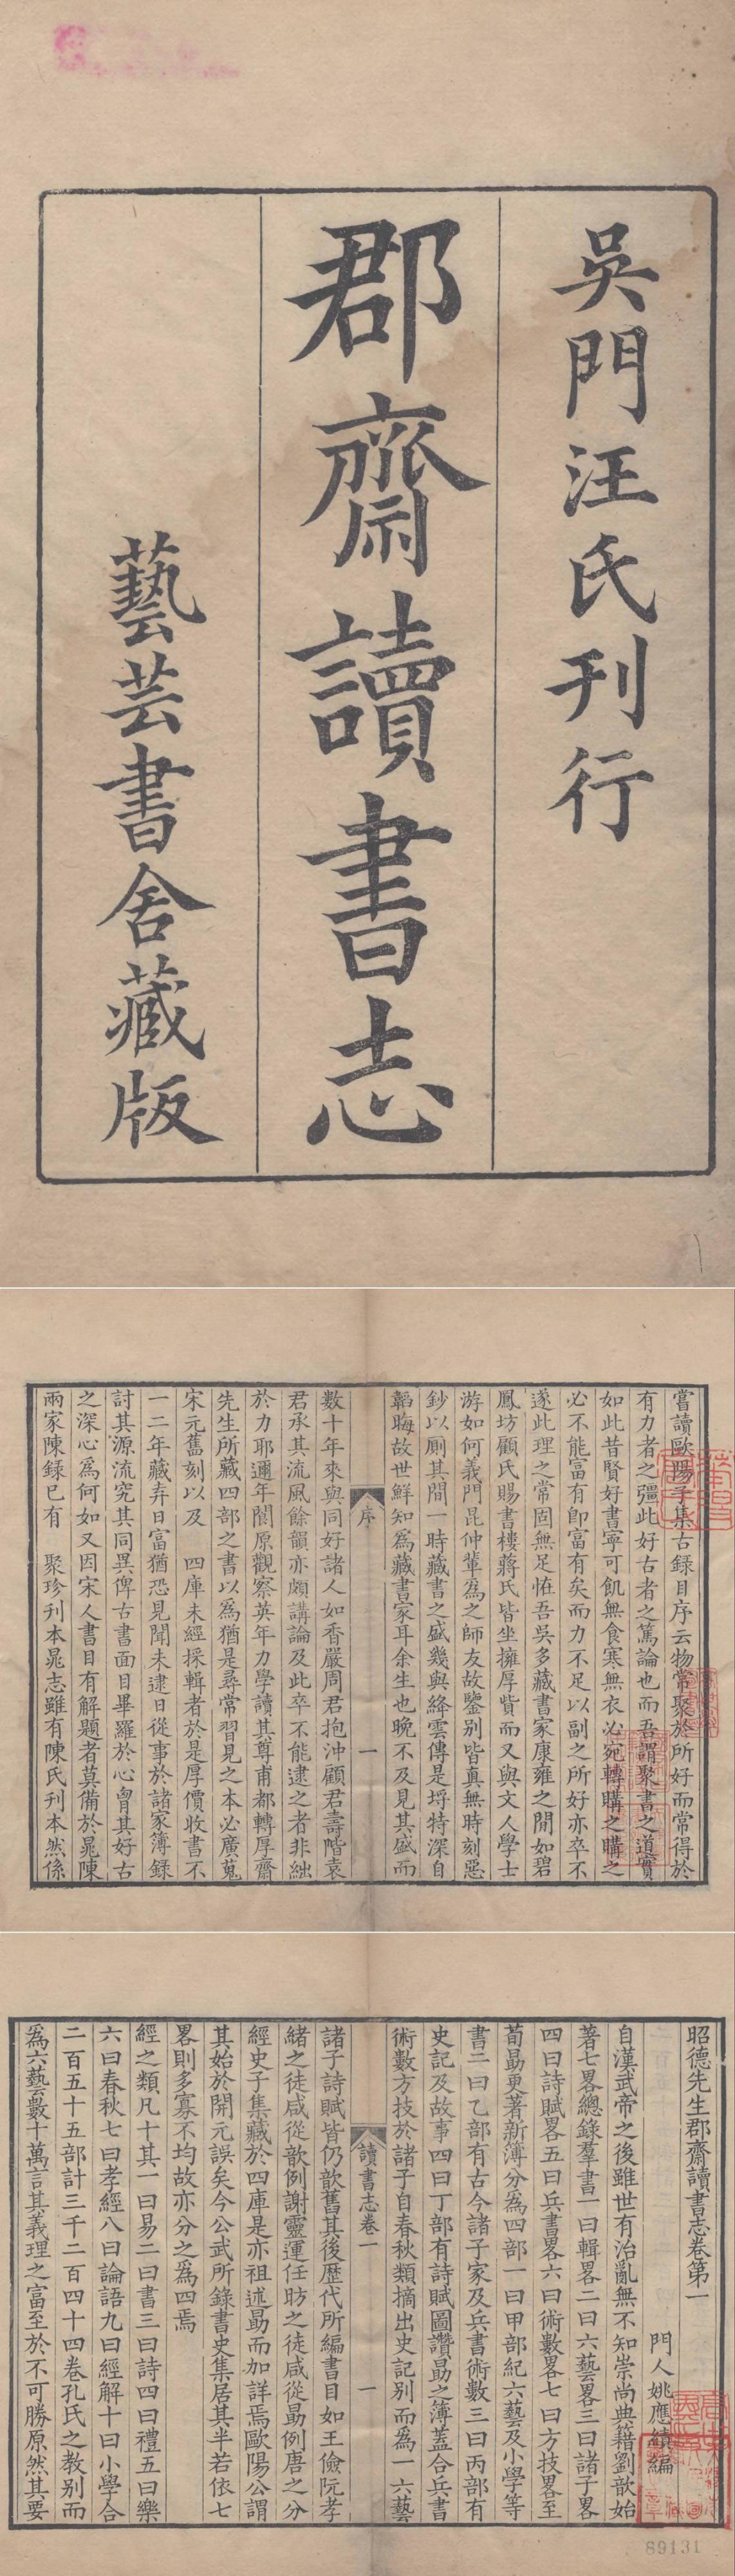 吳門汪氏刊行
郡齋讀書志
藝芸書舍藏版
嘗讀歐陽子集古録目序云物常聚於所好而常得於
有力者之彊此好古者之篤論也而吾謂聚書之道實
如此昔賢好書寧可飢無食寒無衣必宛轉購之購之
必不能富有卽富有矣而力不足以副之所好亦卒不
遂此理之常固無足恠吾吳多藏書家康雍之閒如碧
鳳坊顧氏賜書樓蔣氏皆坐擁厚貲而又與文人學士
游如何義門昆仲輩爲之師友故鑒别皆真無時刻惡
鈔以厠其間一時藏書之盛幾與絳雲傳是埒特深自
韜晦故世鮮知爲藏書家耳余生也晚不及見其盛而
序
一
數十年來與同好諸人如香嚴周君抱沖顧君壽階袁
君承其流風餘韻亦頗講論及此卒不能逮之者非絀
於力耶邇年閬原觀察英年力學讀其尊甫都轉厚齋
先生所藏四部之書以爲猶是尋常習見之本必廣蒐
宋元舊刻以及　四庫未經採輯者於是厚價收書不
一二年藏弆日富猶恐見聞未逮日從事於諸家簿録
討其源流究其同異俾古書面目畢羅於心胷其好古
之深心爲何如又因宋人書目有解題者莫備於晁陳
兩家陳録已有　聚珍刊本晁志雖有陳氏刊本然係
昭德先生郡齋讀書志卷第一
門人姚應績編
自漢武帝之後雖世有治亂無不知崇尚典籍劉歆始
著七畧總錄羣書一曰輯畧二曰六藝畧三曰諸子畧
四曰詩賦畧五曰兵書畧六曰術數畧七曰方技畧至
荀勗更著新簿分爲四部一曰甲部紀六藝及小學等
書二曰乙部有古今諸子家及兵書術數三曰丙部有
史記及故事四曰丁部有詩賦圖讚勗之簿蓋合兵書
術數方技於諸子自春秋類摘出史記别而爲一六藝
讀書志卷一
一
諸子詩賦皆仍歆舊其後歷代所編書目如王儉阮孝
緒之徒咸從歆例謝靈運任昉之徒咸從勗例唐之分
經史子集藏於四庫是亦祖述勗而加詳焉歐陽公謂
其始於開元誤矣今公武所錄書史集居其半若依七
畧則多寡不均故亦分之爲四焉
經之類凡十其一曰易二曰書三曰詩四曰禮五曰樂
六曰春秋七曰孝經八曰論語九曰經解十曰小學合
二百五十五部計三千二百四十四卷孔氏之教别而
爲六藝數十萬言其義理之富至於不可勝原然其要
89131